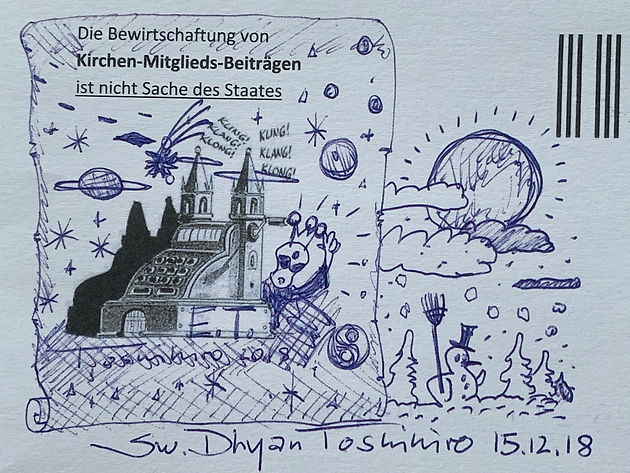 Die Bewirtschaftung von
Kirchen-Mitglieds-Beiträgen
ist nicht Sache des Staates
KLING!
KLANG!
KLONG!
KLING!
KLANG!
KLONG!
E.T.
Toshihiro 2018
Sw. Dhyan Toshihiro 15.12.18